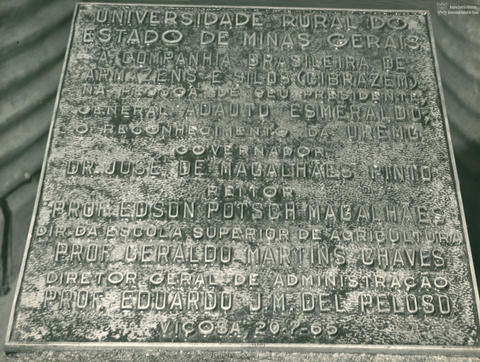 UNIVERSIDADE RURAL DO
ESTADO DE MINAS GERAIS
A COMPANHIA BRASILEIRA DE
ARMAZENS E SILOS (CIBRAZEM)
NA PESSOA DE SEU PRESIDENTE
GENERAL ADAUTO ESMERALDO
O RECONHECIMENTO DA UREMG
GOVERNADOR
DR. JOSÉ DE MAGALHÃES PINTO
REITOR
PROF. EDSON POTSCH MAGALHÃES
DIR. DA ESCOLA SUPERIOR DE AGRICULTURA
PROF. GERALDO MARTINS CHAVES
DIRETOR GERAL DE ADMINISTRAÇÃO
PROF. EDUARDO J.M. DEL PELOSO
VIÇOSA 20-7-65